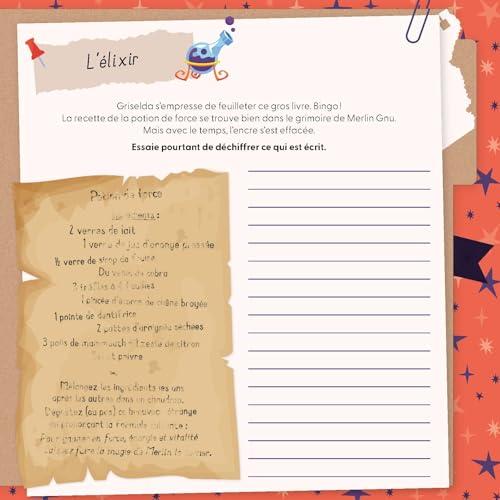 L'élixir
Griselda s'empresse de feuilleter ce gros livre. Bingo!
La recette de la potion de force se trouve bien dans le grimoire de Merlin Gnu.
Mais avec le temps, l'encre s'est effacée.
Essaie pourtant de déchiffrer ce qui est écrit.
Potion de force
2 verres de lait
1 verre de jus d'orange pressée
½ verre de sirop de
Du venin de cobra
3 trèfles à 4 feuilles
1 pincée d'écorce de chêne broyée
1 pointe de dentifrice
2 pattes d'araignée séchées
3 poils de mammouth 1 zeste de citron
Sel et poivre
Mélangez les ingrédients les uns
après les autres dans un chaudron.
Dégustez (ou pas) ce breuvage étrange
en prononçant la formule suivante :
Pour gagner en force, énergie et vitalité
Laissez faire la magie de Merlin le